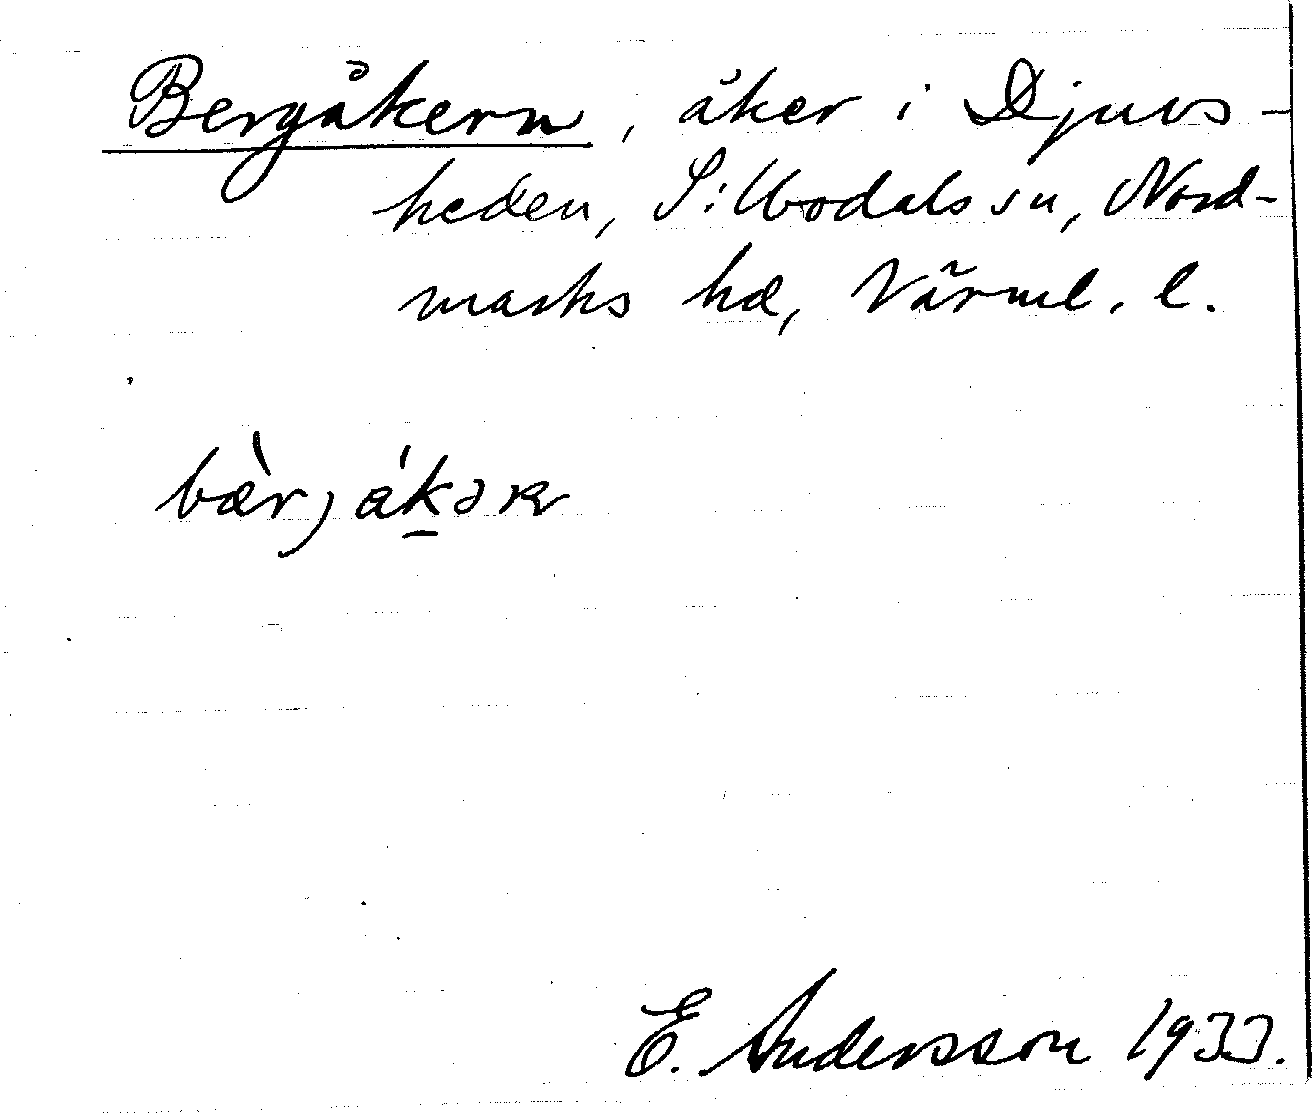 Bergåkern, åker i Djuvs-
heden, Silbodals sn, Nord-
marks hd, Värml. l.
bær̀jákəɴ
E. Andersson 1933.